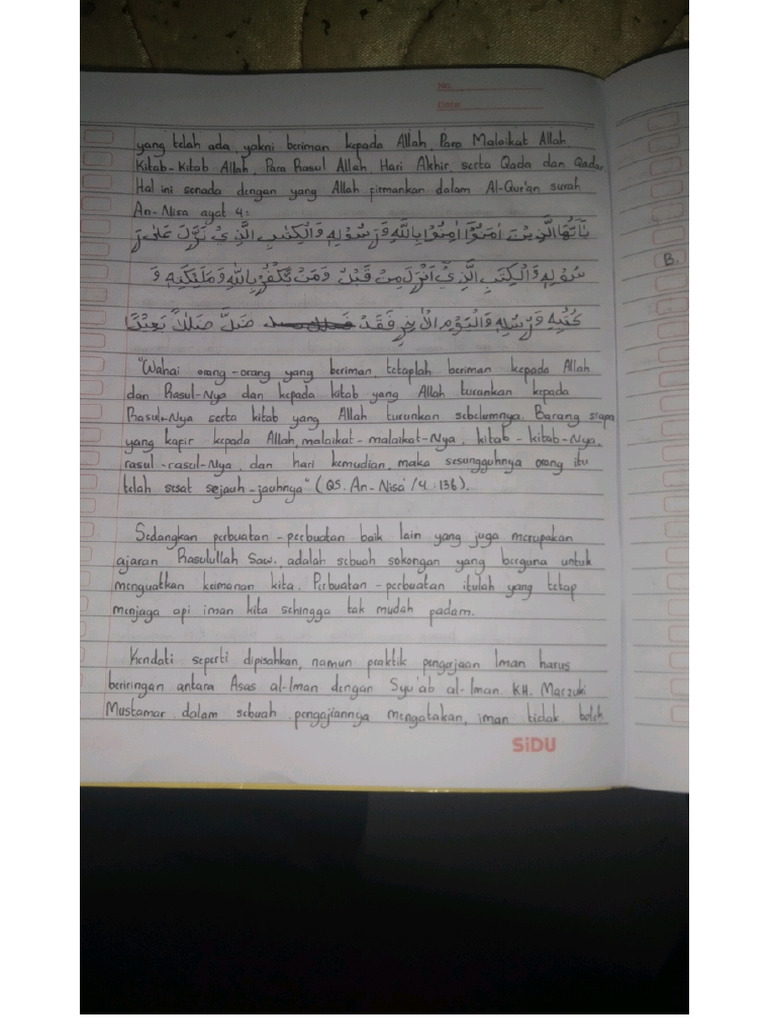 No.
Date
yang telah ada, yakni beriman kepada Allah, Para Malaikat Allah
Kitab-Kitab Allah, Para Rasul Allah, Hari Akhir, serta Qada dan Qadar.
Hal ini senada dengan yang Allah firmankan dalam Al-Qur'an surah
An-Nisa ayat 4:
يٰٓاَيُّهَا الَّذِيْنَ اٰمَنُوْٓا اٰمِنُوْا بِاللّٰهِ وَرَسُوْلِهٖ وَالْكِتٰبِ الَّذِيْ نَزَّلَ عَلٰى رَ
سُوْلِهٖ وَالْكِتٰبِ الَّذِيْٓ اَنْزَلَ مِنْ قَبْلُ وَمَنْ يَّكْفُرْ بِاللّٰهِ وَمَلٰٓئِكَتِهٖ وَ
كُتُبِهٖ وَرُسُلِهٖ وَالْيَوْمِ الْاٰخِرِ فَقَدْ ضَلَّ ضَلٰلًا بَعِيْدًا
B.
"Wahai orang-orang yang beriman, tetaplah beriman kepada Allah
dan Rasul-Nya dan kepada kitab yang Allah turunkan kepada
Rasul-Nya serta kitab yang Allah turunkan sebelumnya. Barang siapa
yang kapir kepada Allah, malaikat-malaikat-Nya, kitab-kitab-Nya,
rasul-rasul-Nya, dan hari kemudian, maka sesungguhnya orang itu
telah sesat sejauh-jauhnya" (QS. An-Nisa'/4:136).
Sedangkan perbuatan-perbuatan baik lain yang juga merupakan
ajaran Rasulullah Saw. adalah sebuah sokongan yang berguna untuk
menguatkan keimanan kita. Perbuatan-perbuatan itulah yang tetap
menjaga api iman kita sehingga tak mudah padam.
Kendati seperti dipisahkan, namun praktik pengerjaan Iman harus
beriringan antara Asas al-Iman dengan Syu'ab al-Iman. KH. Marzuki
Mustamar dalam sebuah pengajiannya mengatakan, iman tidak boleh
SiDU